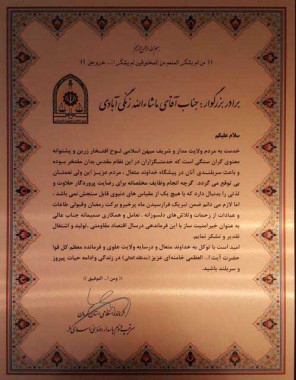 بسم الله الرحمن الرحیم
(( من لم یشکر المنعم من المخلوقین لم یشکر الله عزوجل ))
برادر بزرگوار ؛ جناب آقای ماشاءالله زنگی آبادی
سلام علیکم
خدمت به مردم ولایت مدار و شریف میهن اسلامی لوح افتخار زرین و پشتوانه
معنوی گران سنگی است که خدمتگزاران در این نظام مقدس بدان مفتخر بوده
و باعث سربلندی آنان در پیشگاه خداوند متعال ، مردم عزیز این ولی نعمتان
بی توقع می گردد. گرچه انجام وظایف مخلصانه برای رضایت پروردگار حلاوت و
لذتی را بدنبال دارد که با هیچ یک از مقیاس های دنیوی قابل سنجش نمی باشد ،
اما لازم می دانم ضمن تبریک فرارسیدن ماه پرخیر و برکت رمضان و قبولی طاعات
و عبادات از زحمات و تلاش های دلسوزانه ، تعامل و همکاری صمیمانه جناب عالی
به عنوان خیر امنیت ساز با این فرماندهی درسال اقتصاد مقاومتی ،تولید و اشتغال
تقدیر و تشکر نمایم.
امید است با توکل به خداوند متعال و درسایه ولایت علوی و فرمانده معظم کل قوا
حضرت آیت ا... العظمی خامنه‌ای عزیز (مدظله العالی) در زندگی و ادامه حیات پیروز
و سربلند باشید.
(( ومن ا... التوفیق ))